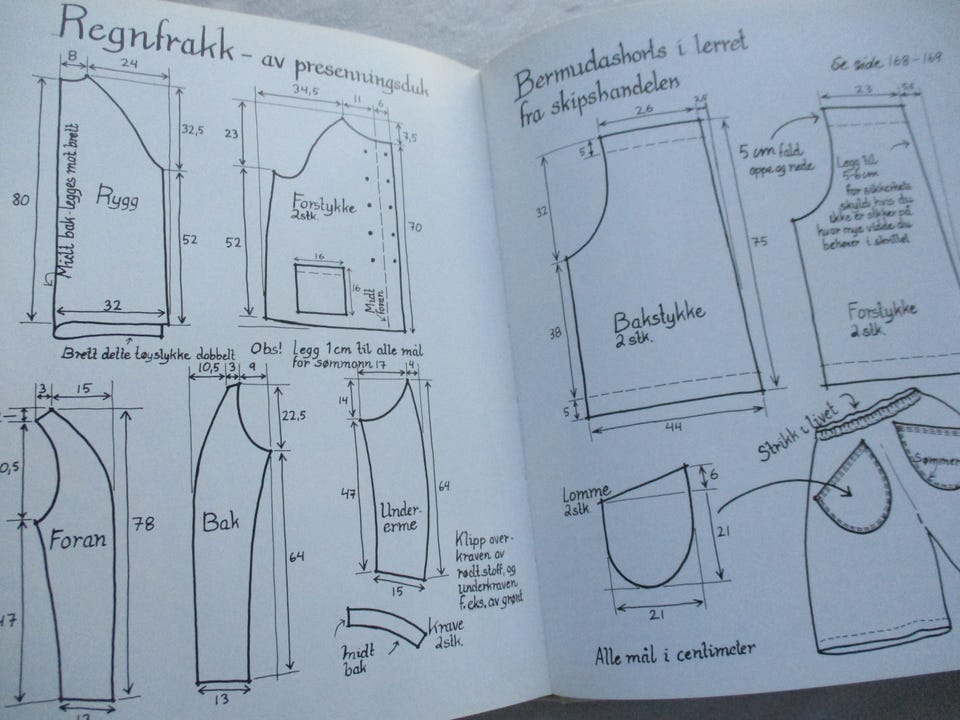 Regnfrakk - av presenningsduk
8
24
32,5
80
Midt bak - legges mot brett
Rygg
52
32
Brett dette tøystykke dobbelt
34,5
11
6
23
7,5
Forstykke
2 stk.
52
70
16
16
Midt
foran
Obs! Legg 1 cm til alle mål
for sømmonn
3
15
0,5
78
Foran
47
12
10,5
3
9
22,5
Bak
64
13
17
4
14
47
64
Under-
erme
15
Klipp over-
kraven av
rødt stoff, og
underkraven
f. eks. av grønt
Krave
2 stk.
midt
bak
Bermudashorts i lerret
fra skipshandelen
Se side 168-169
26
5
32
75
38
Bakstykke
2 stk.
5
44
23
5 cm fald
oppe og nede
Legg til
5-6 cm
for sikkerhets
skyld hvis du
ikke er sikker på
hvor mye vidde du
behøver i skrittet
Forstykke
2 stk.
Strikk i livet
Lomme
2 stk.
6
21
21
Sømmer
Alle mål i centimeter